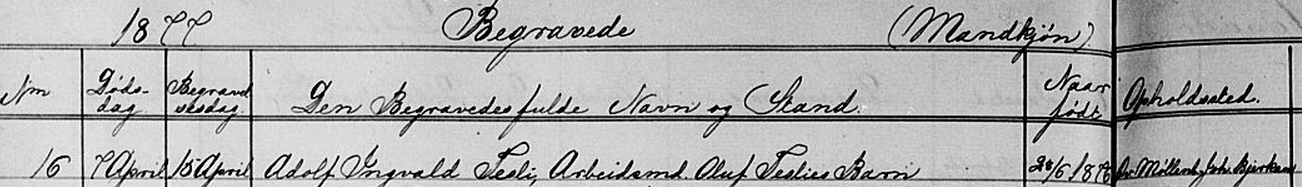 1877 Begravede (Mandkjøn)
Nm Døds- Begravel Den Begravedes fulde Navn og Stand. Naar Opholdssted.
dag sesdag født
16 7 April 15 April Adolf Ingvald Tesli, Arbeidsmd Oluf Teslies Barn 28/6 1876 Møllenb. Joh. Bjerkan